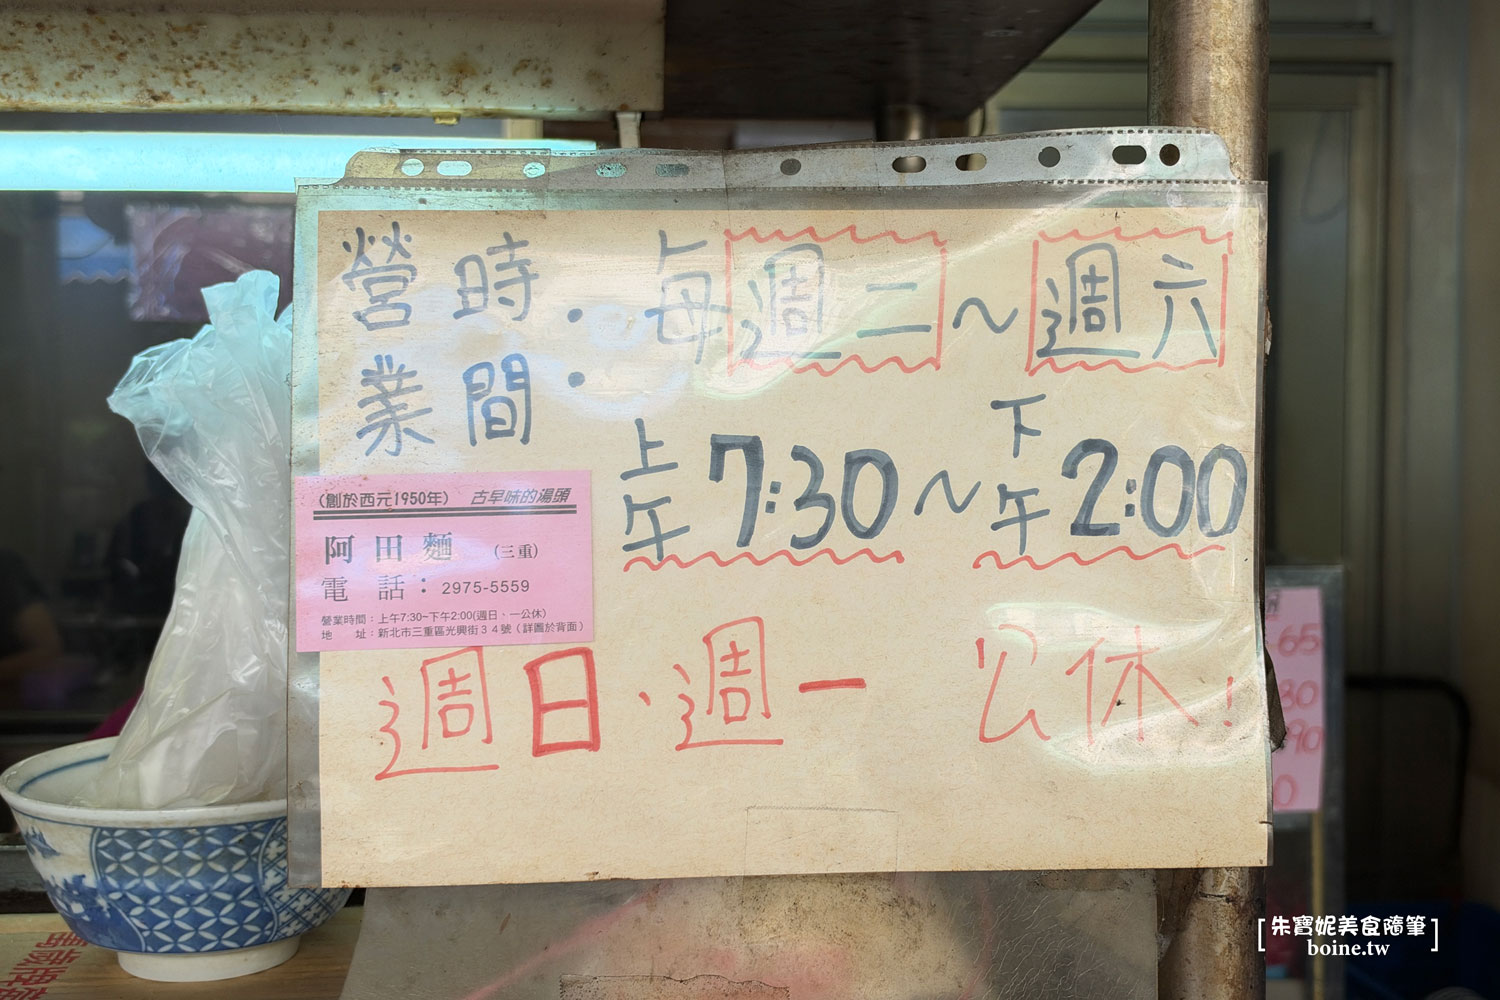 營業時間：每週二～週六
上午7:30～下午2:00
(創於西元1950年) 古早味的湯頭
阿田麵 (三重)
電話：2975-5559
營業時間：上午7:30~下午2:00(週日、一公休)
地 址：新北市三重區光興街３４號（詳圖於背面）
週日、週一 公休!
65
80
90
0
[朱寶妮美食隨筆]
boine.tw